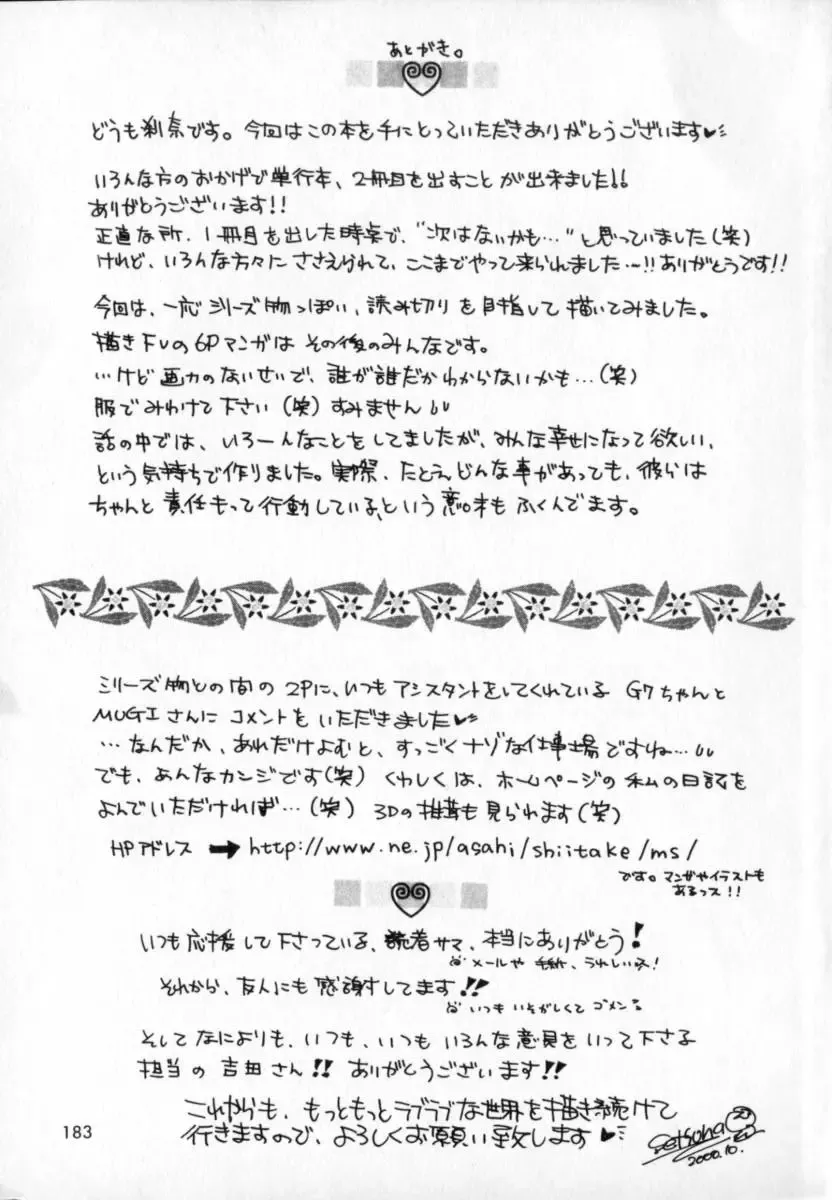 あとがき。
どうも刹奈です。今回はこの本を手にとっていただきありがとうございます♥
いろんな方のおかげで単行本、2冊目を出すことが出来ました!!
ありがとうございます!!
正直な所、1冊目を出した時点で、“次はないかも…”と思っていました(笑)
けれど、いろんな方々にささえられて、ここまでやって来られました…!!ありがとうです!!
今回は、一応シリーズ物っぽい、読み切りを目指して描いてみました。
描き下しの6Pマンガはその後のみんなです。
…けど画力のないせいで、誰が誰だかわからないかも…(笑)
服でみわけて下さい(笑)すみません
話の中では、いろーんなことをしてましたが、みんな幸せになって欲しい、
という気持ちで作りました。実際、たとえどんな事があっても、彼らは
ちゃんと責任もって行動している、という意味もふくんでます。
シリーズ物との間の2Pに、いつもアシスタントをしてくれているG7ちゃんと
MUGIさんにコメントをいただきました♥
…なんだか、あれだけよむと、すっごくナゾな仕事場ですね…
でも、あんなカンジです(笑)くわしくは、ホームページの私の日記を
よんでいただければ…(笑)3Dの椎茸も見られます(笑)
HPアドレス ➡ http://www.ne.jp/asahi/shiitake/ms/
です。マンガやイラストも
あるっス!!
いつも応援して下さっている、読者サマ、本当にありがとう!
メールや手紙、うれしいス!
それから、友人にも感謝してます!!
いつもいそがしくてゴメン
そしてなによりも、いつも、いつもいろんな意見をいって下さる
担当の吉田さん!!ありがとうございます!!
これからも、もっともっとラブラブな世界を描き続けて
行きますので、よろしくお願い致します♥
Setsuna
2000.10.
183